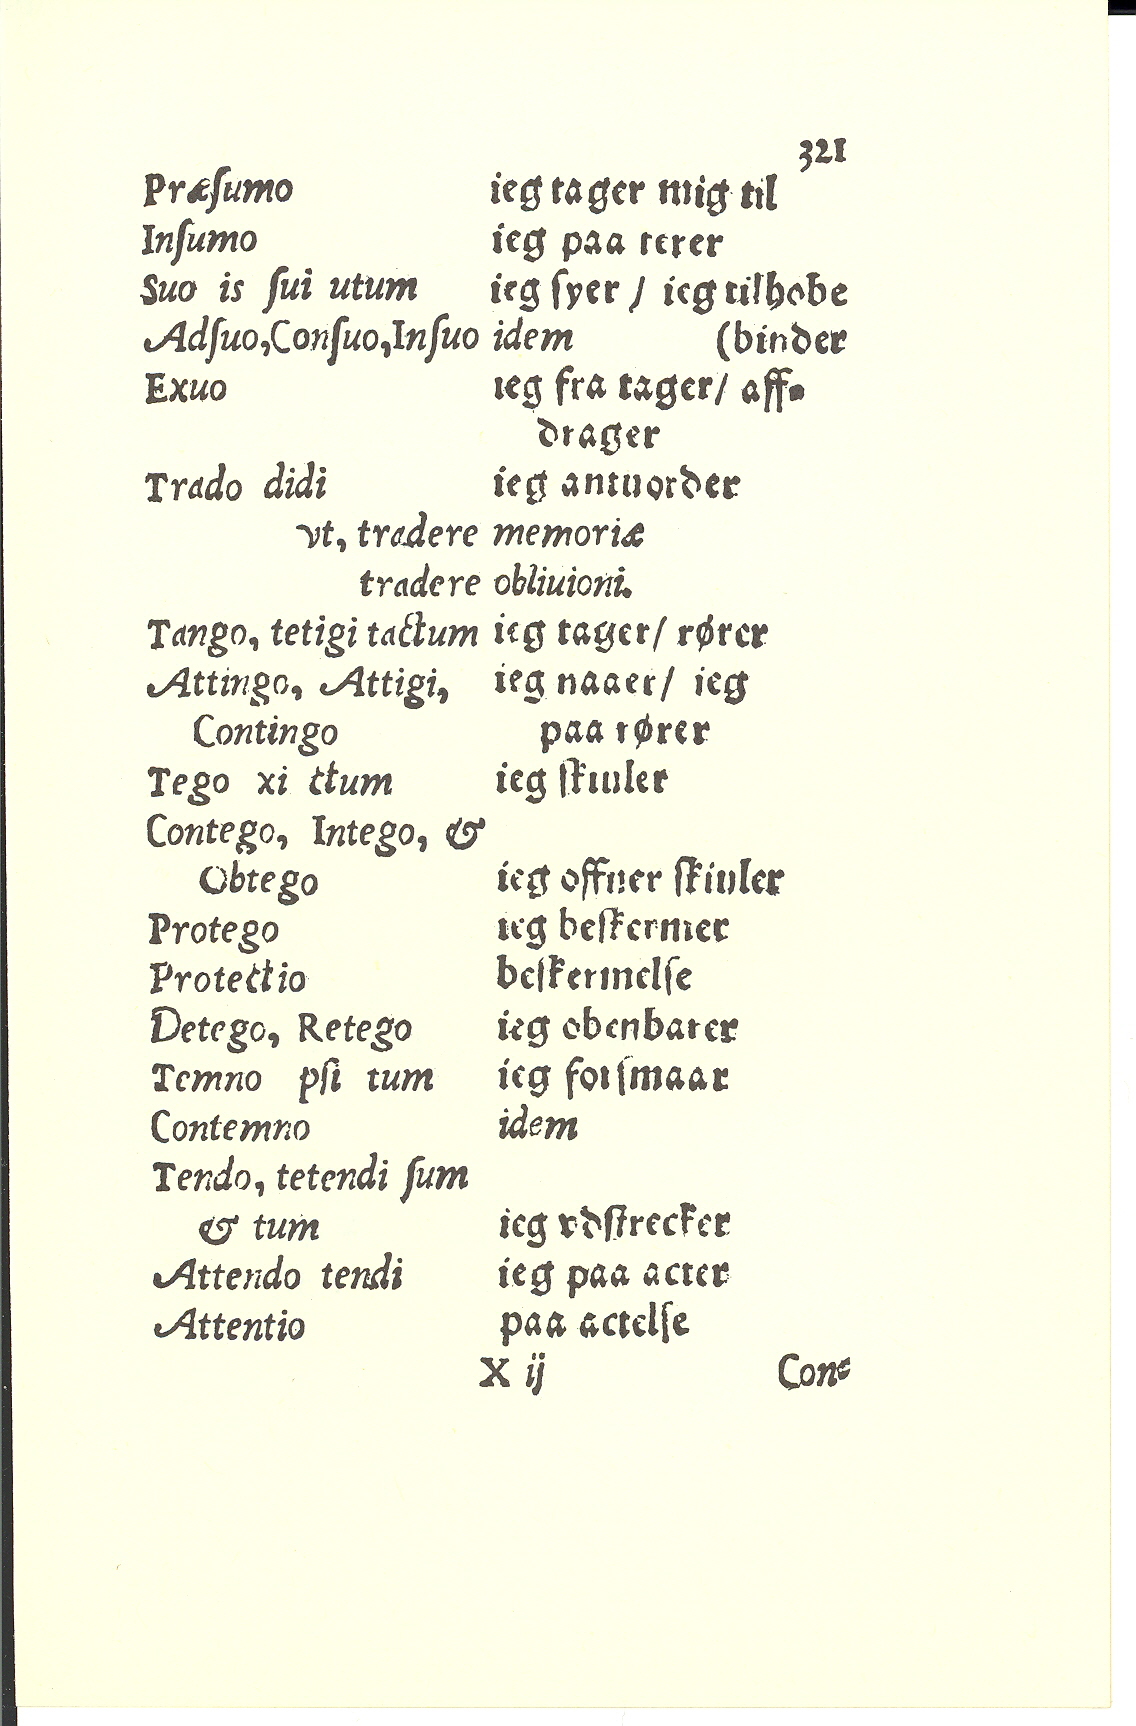 321
Præſumo ieg tager mig til
Inſumo ieg paa terer
Suo is ſui utum ieg ſyer / ieg tilhobe
Adſuo,Conſuo,Inſuo idem (binder
Exuo ieg fra tager/ aff-
drager
Trado didi ieg antuorder
vt, tradere memoriæ
tradere obliuioni.
Tango, tetigi tactum ieg tager/ rører
Attingo, Attigi, ieg naaer/ ieg
Contingo paa rører
Tego xi ctum ieg ſkiuler
Contego, Intego, &
Obtego ieg offuer ſkiuler
Protego ieg beſkermer
Protectio beſkermelſe
Detego, Retego ieg obenbarer
Temno pſi tum ieg forſmaar
Contemno idem
Tendo, tetendi ſum
& tum ieg vdſtrecker
Attendo tendi ieg paa acter
Attentio paa actelſe
X ij Con-